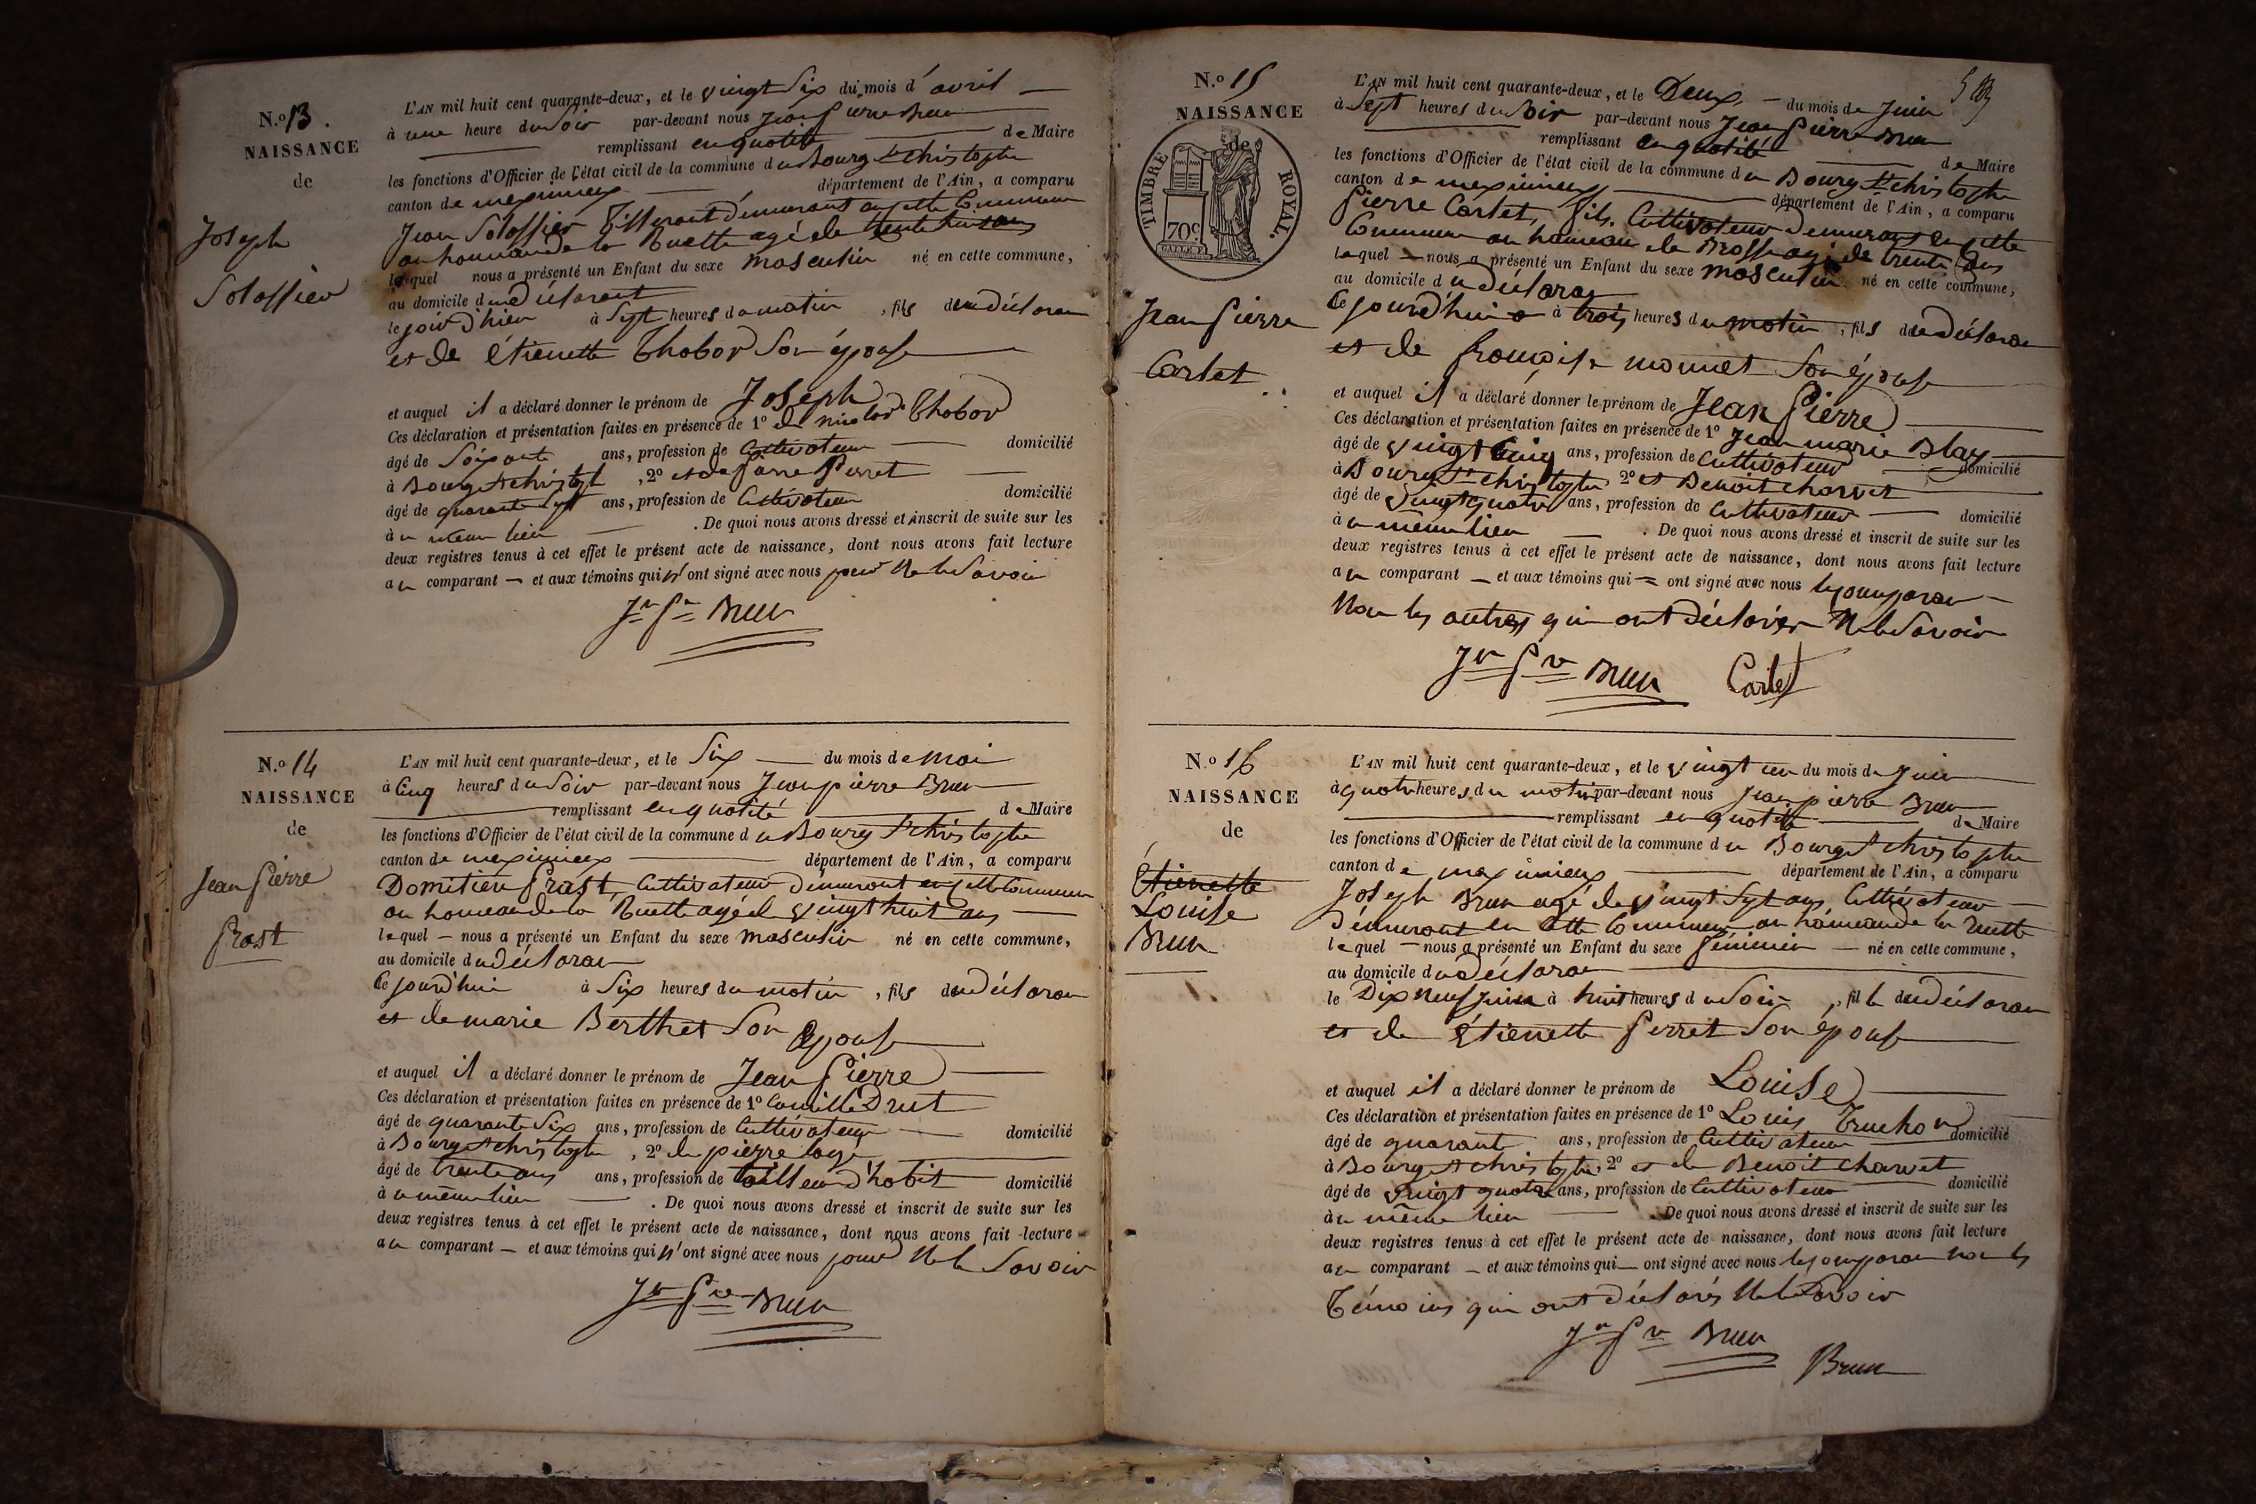 N.o 13.
NAISSANCE
de
Joseph
Solassier
L'AN mil huit cent quarante-deux, et le vingt Six du mois d'avril
à une heure du Soir par-devant nous Jean pierre Brun
remplissant en qualité de Maire
les fonctions d'Officier de l'état civil de la commune du Bourg St christophe
canton de meximieux département de l'Ain, a comparu
Jean Solassier Tisserant demeurant en cette Commune
au hameau de la Ruette agé de trente huit ans
lequel nous a présenté un Enfant du sexe masculin né en cette commune,
au domicile du déclarant
le jour d'hier à Sept heures du matin, fils du déclaran
et de étienette Thabor Son épouse
et auquel il a déclaré donner le prénom de Joseph
Ces déclaration et présentation faites en présence de 1o de nicolas Thabor
âgé de Soixante ans, profession de Cultivateur domicilié
à Bourg St christophe, 2o et de pierre Perret
âgé de quarante Sept ans, profession de Cultivateur domicilié
à u même lieu. De quoi nous avons dressé et inscrit de suite sur les
deux registres tenus à cet effet le présent acte de naissance, dont nous avons fait lecture
au comparant — et aux témoins qui n'ont signé avec nous pour Ne le Savoir
Jn Pre Brun
N.o 14
NAISSANCE
de
Jean Pierre
Prost
L'AN mil huit cent quarante-deux, et le Six du mois de mai
à Cinq heures du Soir par-devant nous Jean pierre Brun
remplissant en qualité de Maire
les fonctions d'Officier de l'état civil de la commune du Bourg St christophe
canton de meximieux département de l'Ain, a comparu
Domitien Prost, Cultivateur demeurant en cette Commune
au hameau de la Ruette agé de vingt huit ans
lequel — nous a présenté un Enfant du sexe masculin né en cette commune,
au domicile du déclaran
Ce jourd'hui à Six heures du matin, fils du déclaran
et de marie Berthet Son épouse
et auquel il a déclaré donner le prénom de Jean Pierre
Ces déclaration et présentation faites en présence de 1o Camille Drut
âgé de quarante Six ans, profession de Cultivateur domicilié
à Bourg St christophe, 2o de pierre
âgé de trente ans ans, profession de tailleur d'habit domicilié
à u même lieu. De quoi nous avons dressé et inscrit de suite sur les
deux registres tenus à cet effet le présent acte de naissance, dont nous avons fait lecture
au comparant — et aux témoins qui n'ont signé avec nous pour Ne le Savoir
Jn Pre Brun
N.o 15
NAISSANCE
de
TIMBRE ROYAL.
70c
Jean Pierre
Cartet
L'AN mil huit cent quarante-deux, et le Deux — du mois de Juin
à Sept heures du Soir par-devant nous Jean Pierre Brun
remplissant en qualité de Maire
les fonctions d'Officier de l'état civil de la commune du Bourg St christophe
canton de meximieux département de l'Ain, a comparu
Pierre Cartet, fils, Cultivateur demeurant en cette
Commune au hameau de la Brosse agé de trente ans
lequel — nous a présenté un Enfant du sexe masculin né en cette commune,
au domicile du déclaran
Ce jourd'hui à trois heures du matin, fils du déclaran
et de françoise monnet Son épouse
et auquel il a déclaré donner le prénom de Jean Pierre
Ces déclaration et présentation faites en présence de 1o Jean marie Blay
âgé de vingt Cinq ans, profession de Cultivateur domicilié
à Bourg St christophe 2o et Benoit charvet
âgé de vingt quatre ans, profession de Cultivateur domicilié
à u même lieu. De quoi nous avons dressé et inscrit de suite sur les
deux registres tenus à cet effet le présent acte de naissance, dont nous avons fait lecture
au comparant — et aux témoins qui — ont signé avec nous le comparan
Non les autres qui ont déclarés Ne le Savoir
Jn Pre Brun Cartet
N.o 16
NAISSANCE
de
Étienette
Louise
Brun
L'AN mil huit cent quarante-deux, et le vingt un du mois de Juin
à quatre heures du matin par-devant nous Jean pierre Brun
remplissant en qualité de Maire
les fonctions d'Officier de l'état civil de la commune du Bourg St christophe
canton de meximieux département de l'Ain, a comparu
Joseph Brun agé de vingt Sept ans Cultivateur
demeurant en Cette Commune au hameau de la Ruette
lequel — nous a présenté un Enfant du sexe féminin — né en cette commune,
au domicile du déclaran
le Dix neuf Juin à huit heures du Soir, fille du déclaran
et de Étienette Perret Son épouse
et auquel il a déclaré donner le prénom de Louise
Ces déclaration et présentation faites en présence de 1o Louis Truchon
âgé de quarante ans, profession de Cultivateur domicilié
à Bourg St christophe, 2o et de Benoit charvet
âgé de vingt quatre ans, profession de Cultivateur domicilié
à u même lieu. De quoi nous avons dressé et inscrit de suite sur les
deux registres tenus à cet effet le présent acte de naissance, dont nous avons fait lecture
au comparant — et aux témoins qui — ont signé avec nous le comparan Non les
Témoins qui ont déclarés Ne le Savoir
Jn Pre Brun
Brun